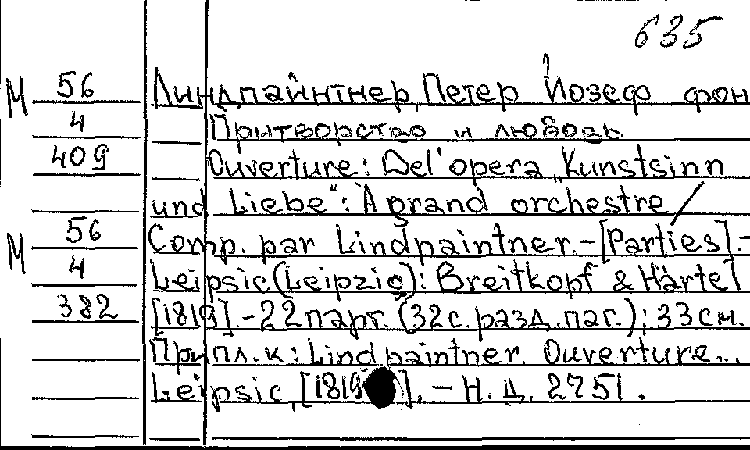 635
М 56 Линдпайнтнер, Петер Йозеф фон
4 Притворство и любовь
409 Ouverture: Del'opera „Kunstsinn
und Liebe": A grand orchestre /
М 56 Comp. par Lindpaintner.-[Parties].-
4 Leipsic (Leipzig): Breitkopf & Härtel
382 [1819].-22 парт. (32с. разд. паг.); 33см.
Припл. к: Lindpaintner. Ouverture...
Leipsic, [1819]. - Н. Д. 2751.